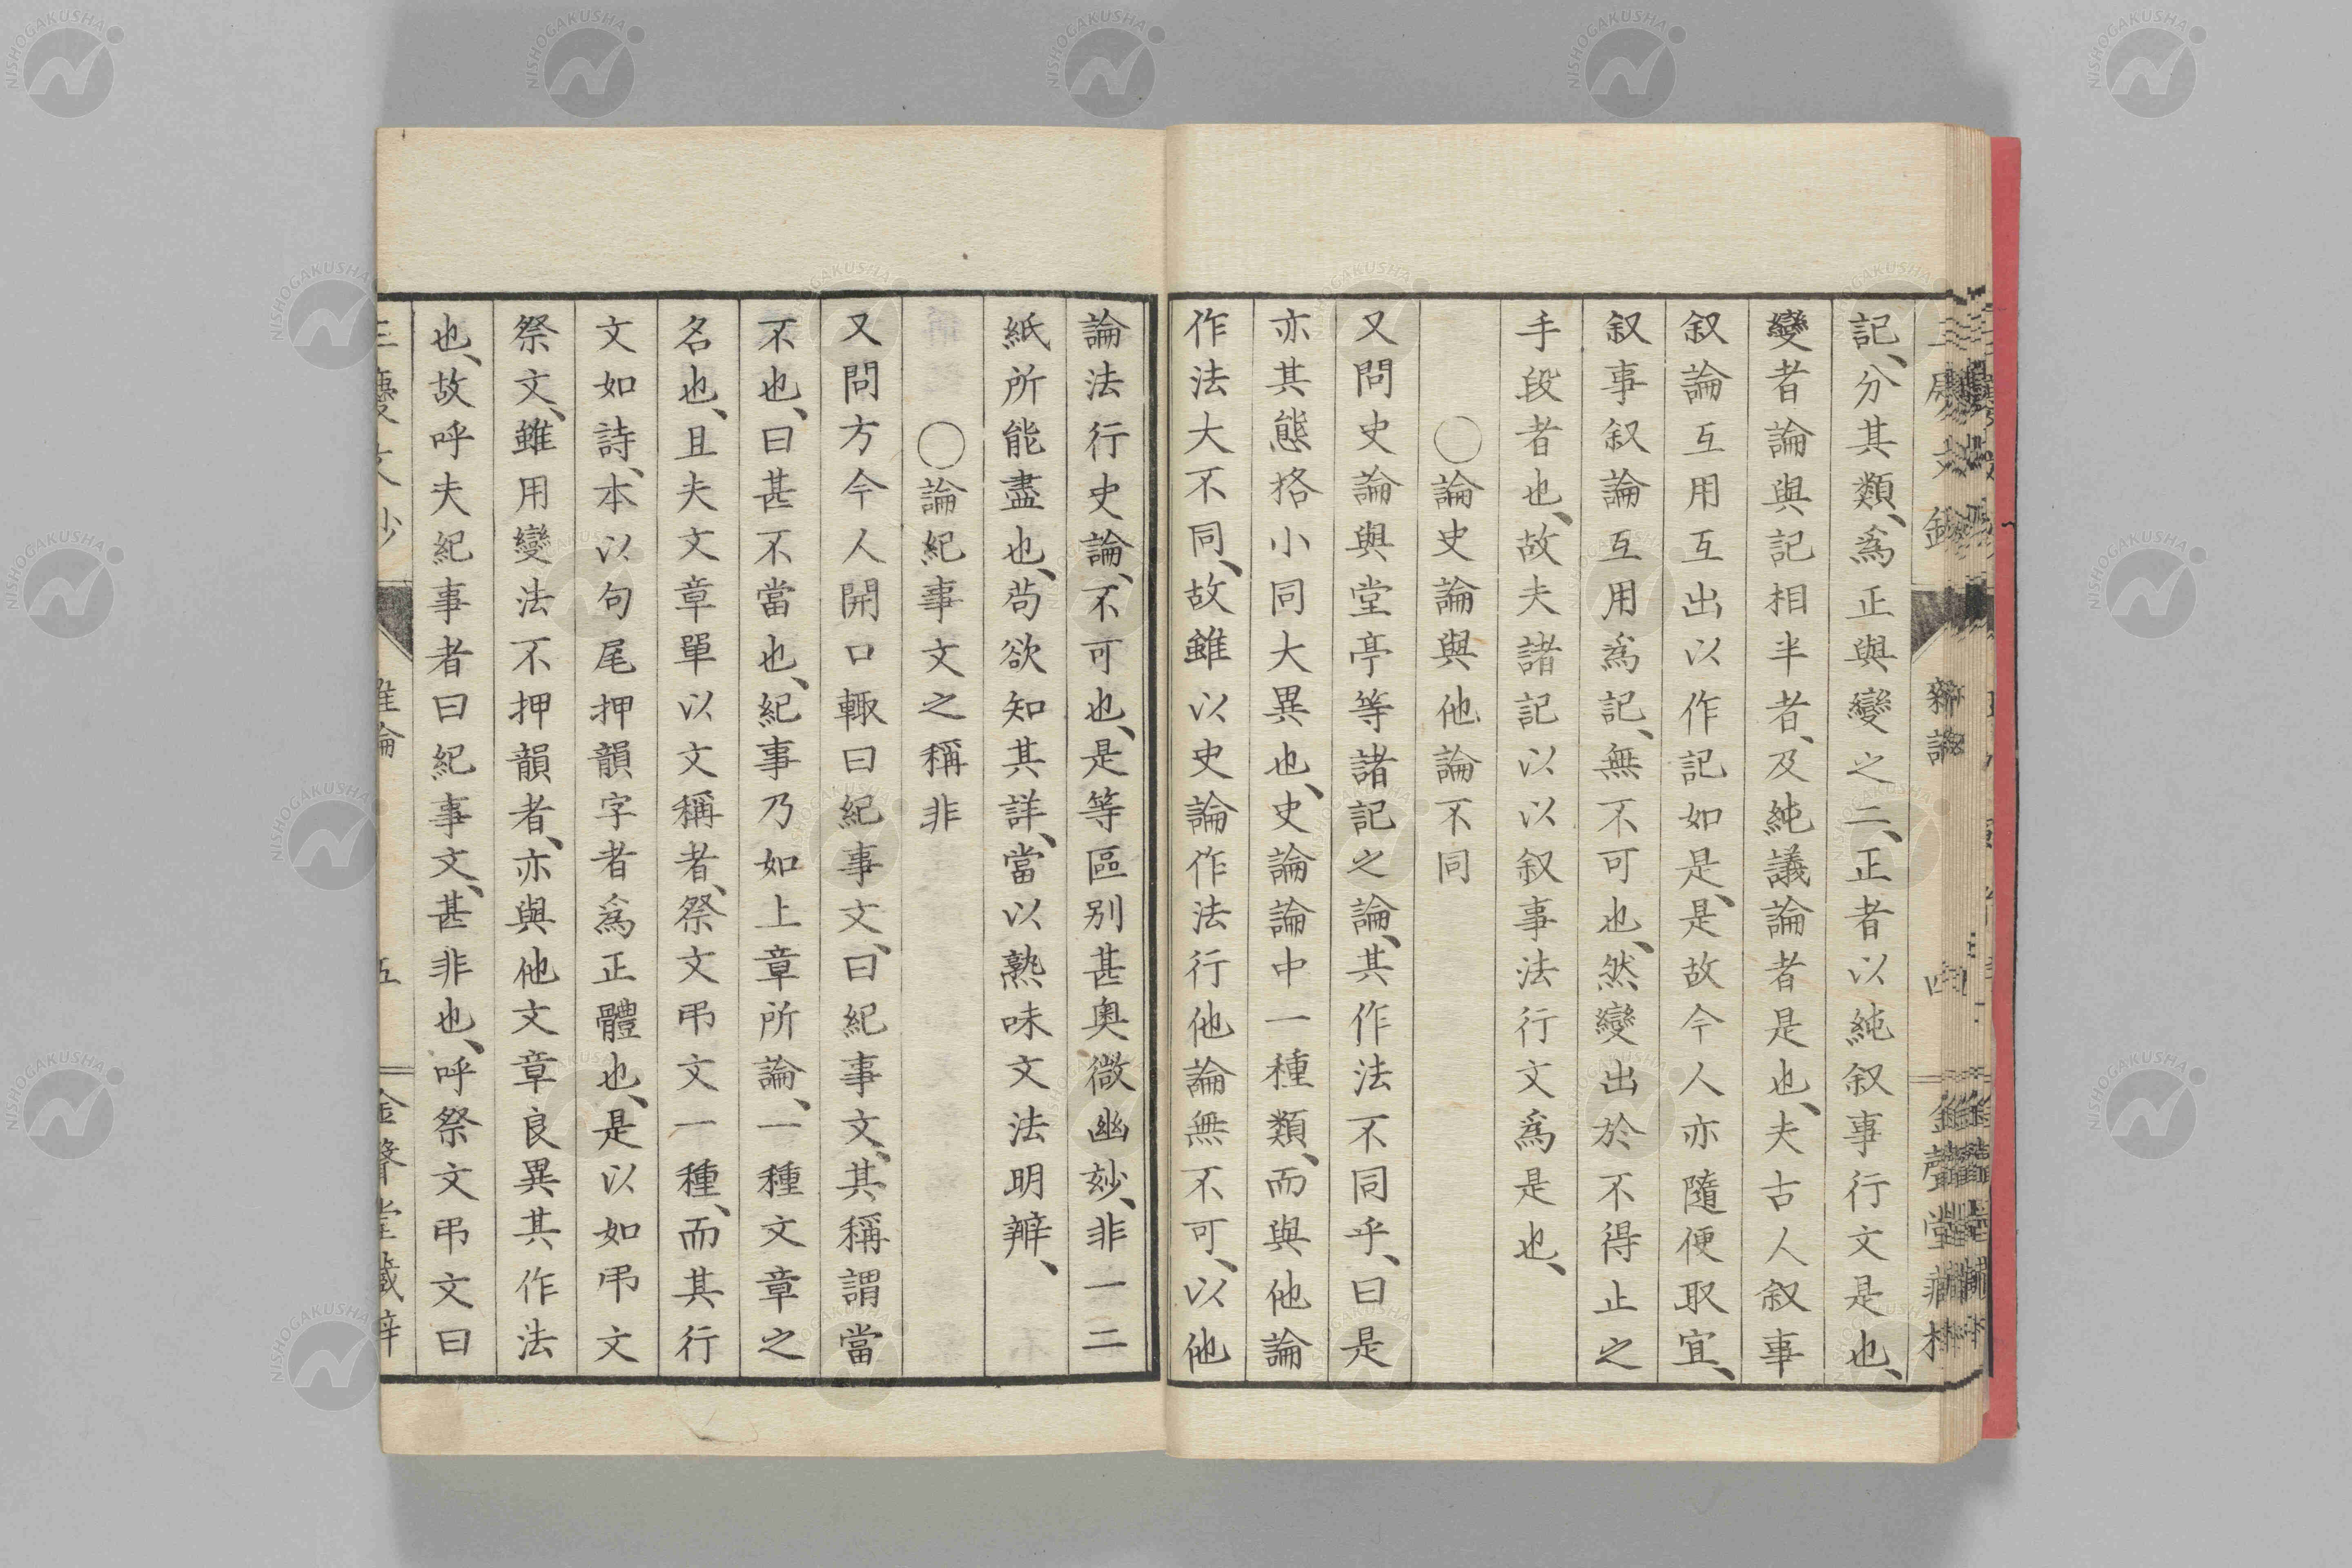 記、分其類、爲正與變之二、正者以純叙事行文是也、
變者論與記相半者、及純議論者是也、夫古人叙事
叙論互用互出以作記如是、是故今人亦隨便取宜、
叙事叙論互用爲記、無不可也、然變出於不得止之
手段者也、故夫諸記以以叙事法行文爲是也、
○論史論與他論不同
又問史論與堂亭等諸記之論、其作法不同乎、曰是
亦其態格小同大異也、史論論中一種類、而與他論
作法大不同、故雖以史論作法行他論無不可、以他
論法行史論、不可也、是等區別甚奧微幽妙、非一二
紙所能盡也、茍欲知其詳、當以熟味文法明辨、
○論紀事文之稱非
又問方今人開口輙曰紀事文、曰紀事文、其稱謂當
不也、曰甚不當也、紀事乃如上章所論、一種文章之
名也、且夫文章單以文稱者、祭文弔文一種、而其行
文如詩、本以句尾押韻字者爲正體也、是以如弔文
祭文、雖用變法不押韻者、亦與他文章良異其作法
也、故呼夫紀事者曰紀事文、甚非也、呼祭文弔文曰
五
NISHOGAKUSHA